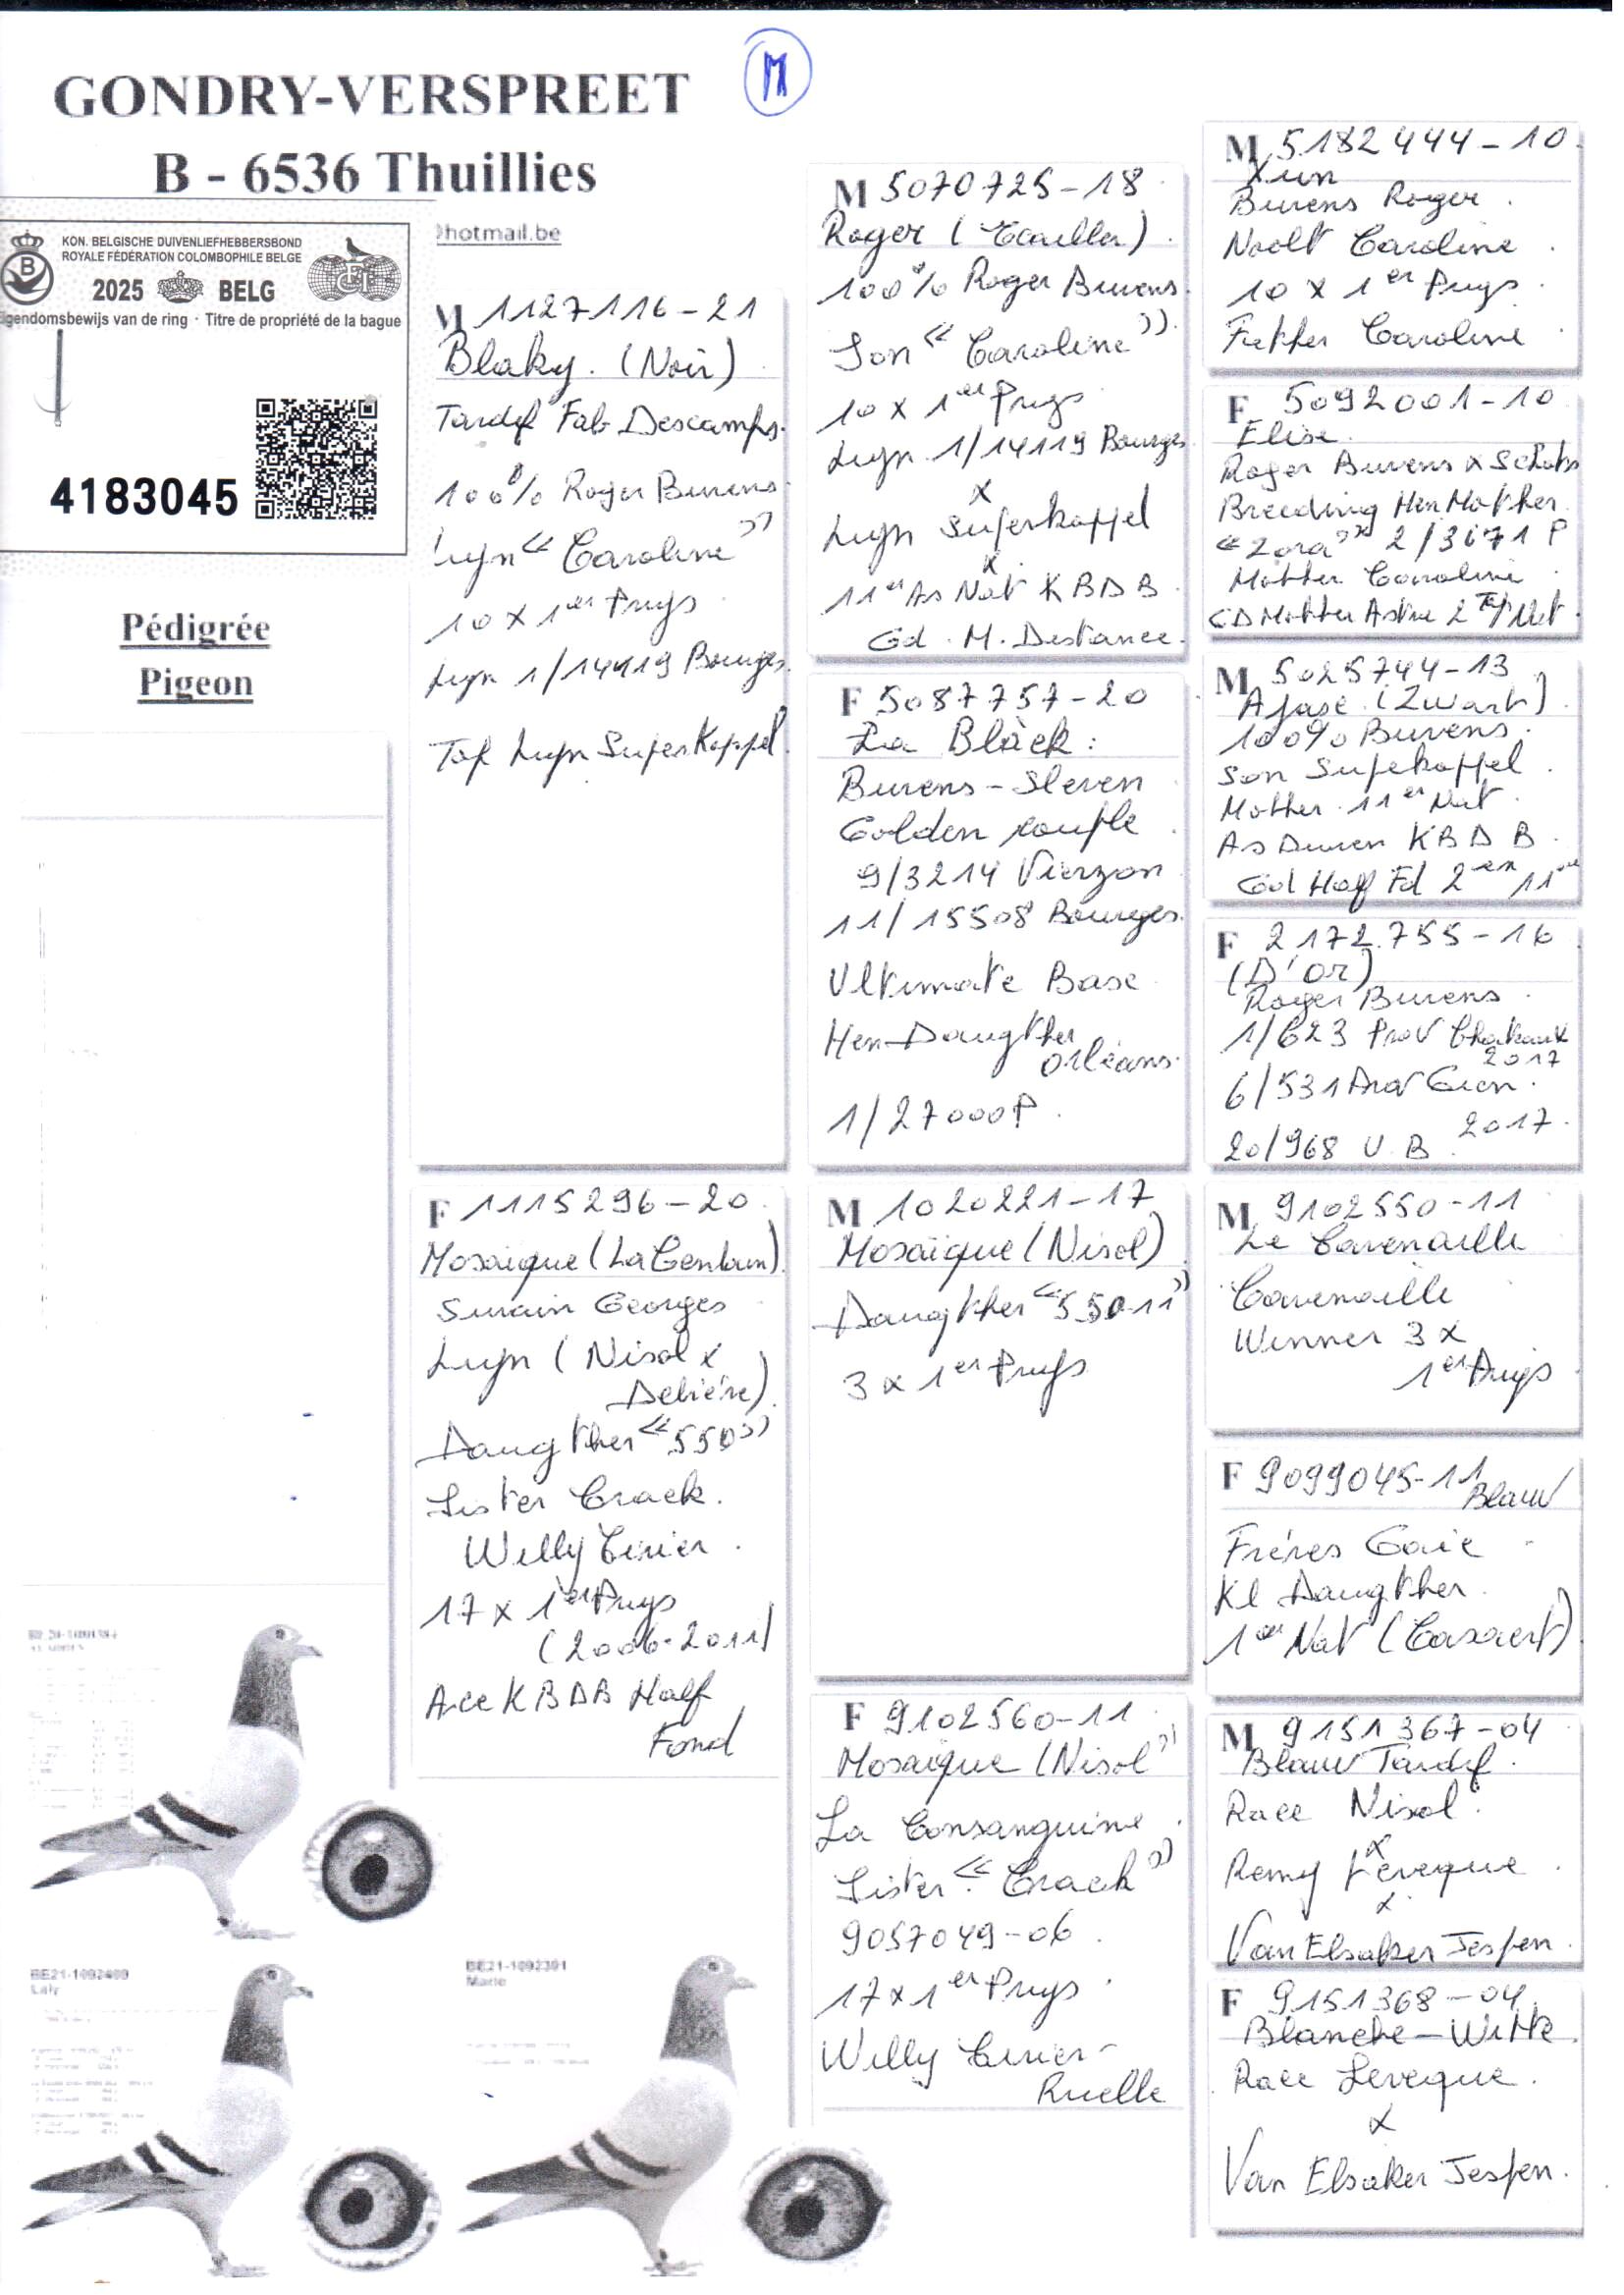 M
GONDRY-VERSPREET
B - 6536 Thuillies
hotmail.be
KON. BELGISCHE DUIVENLIEFHEBBERSBOND
ROYALE FÉDÉRATION COLOMBOPHILE BELGE
B
FCI
2025 BELG
igendomsbewijs van de ring · Titre de propriété de la bague
4183045
Pédigrée
Pigeon
M 1127116-21
Blaky. (Noir)
Tardif Fab Descamps.
100% Roger Burens
Lyn « Caroline »
10 x 1er Prijs
Lyn 1/14119 Bourges
Top Lyn SuperKoppel.
F 1115296-20
Mosaïque (La Gentoun)
Surain Georges
Lyn (Nisol x
Debière)
Daugther « 550 »
Sister Crack.
Willy
17 x 1er Prijs
(2006-2011)
Ace KBDB Half
Fond
M 5070725-18
Roger (Ecailler)
100% Roger Burens.
Son « Caroline ».
10 x 1er Prijs
Lyn 1/14119 Bourges
x
Lyn Superkoppel
x
11er As Nat KBDB
Gd. M. Distance.
F 5087757-20
La Blàck:
Burens-Sleven
Golden couple
9/3214 Vierzon
11/15508 Bourges.
Ultimate Base
Hen Daugther
Orléans.
1/27000P.
M 1020221-17
Mosaïque (Nisol)
Daugther « 550-11 »
3 x 1er Prijs
F 9102560-11
Mosaïque (Nisol »
La Consanguine.
Sister « Crack »
9057049-06
17 x 1er Prijs.
Willy
Ruelle
M 5182444-10
Xun
Burens Roger.
Nacht Caroline
10 x 1er Prijs.
Father Caroline
F 5092001-10
Elise.
Roger Burens x
Breeding Hen Mother
« Zora » 2/3671 P
Mother Caroline
M 5025744-13
Ajase. (Zwart)
100% Burens.
Son Supekoppel.
Mother 11er Nat.
As Duiven KBDB.
Gd Half Fd 2en 11
F 2172.755-16
(D'or)
Roger Burens.
1/623 Prov
2017
6/531 Prov Gien.
2017.
20/968 U.B
M 9102550-11
Le Cavenaille
Cavenaille
Winner 3 x
1er Prijs
F 9099045-11
Blauw
Frères Gaie
Kl Daugther.
1er Nat (Casaert)
M 9151367-04
Blauw Tardif.
Race Nisol.
x
Remy Leveque.
x
Van Elsaker Jespen.
F 9151368-04
Blanche-Witte.
Race Leveque.
x
Van Elsaker Jespen.
BE21-1092409
Laly
BE21-1092391
Marie